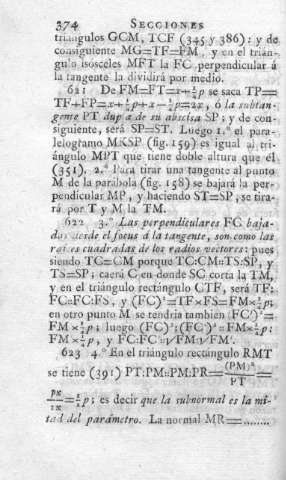 374 SECCIONES
triangulos GCM, TCF (345 y 386): y de
consiguiente MG=TF=FM, y en el trián-
gulo isosceles MFT la FC perpendicular á
la tangente la dividirá por medio.
621 De FM=FT=x+¼p se saca TP=
TF+FP=x+¼p+x-¼p=2x, ó la subtan-
gente PT dupla de su abscisa SP; y de con-
siguiente, será SP=ST. Luego 1.º el para-
lelogramo MKSP (fig. 159) es igual al tri-
ángulo MPT que tiene doble altura que él
(351). 2.º Para tirar una tangente al punto
M de la parábola (fig. 158) se bajará la per-
pendicular MP, y haciendo ST=SP, se tira-
rá por T y M la TM.
622 3.º Las perpendiculares FC baja-
das desde el focus á la tangente, son como las
raices cuadradas de los radios vectores: pues
siendo TC=CM porque TC:CM::TS:SP, y
TS=SP; caerá C en donde SC corta la TM,
y en el triángulo rectángulo CTF, será TF:
FC::FC:FS, y (FC)²=TF×FS=FM×¼p;
en otro punto M' se tendria tambien (FC')²=
FM'×¼p; luego (FC)²:(FC')²::FM×¼p:
FM'×¼p, y FC:FC'::√FM:√FM'.
623 4.º En el triángulo rectángulo RMT
se tiene (391) PT:PM::PM:PR=(PM)²/PT=
px/2x=½p; es decir que la subnormal es la mi-
tad del parámetro. La normal MR=........